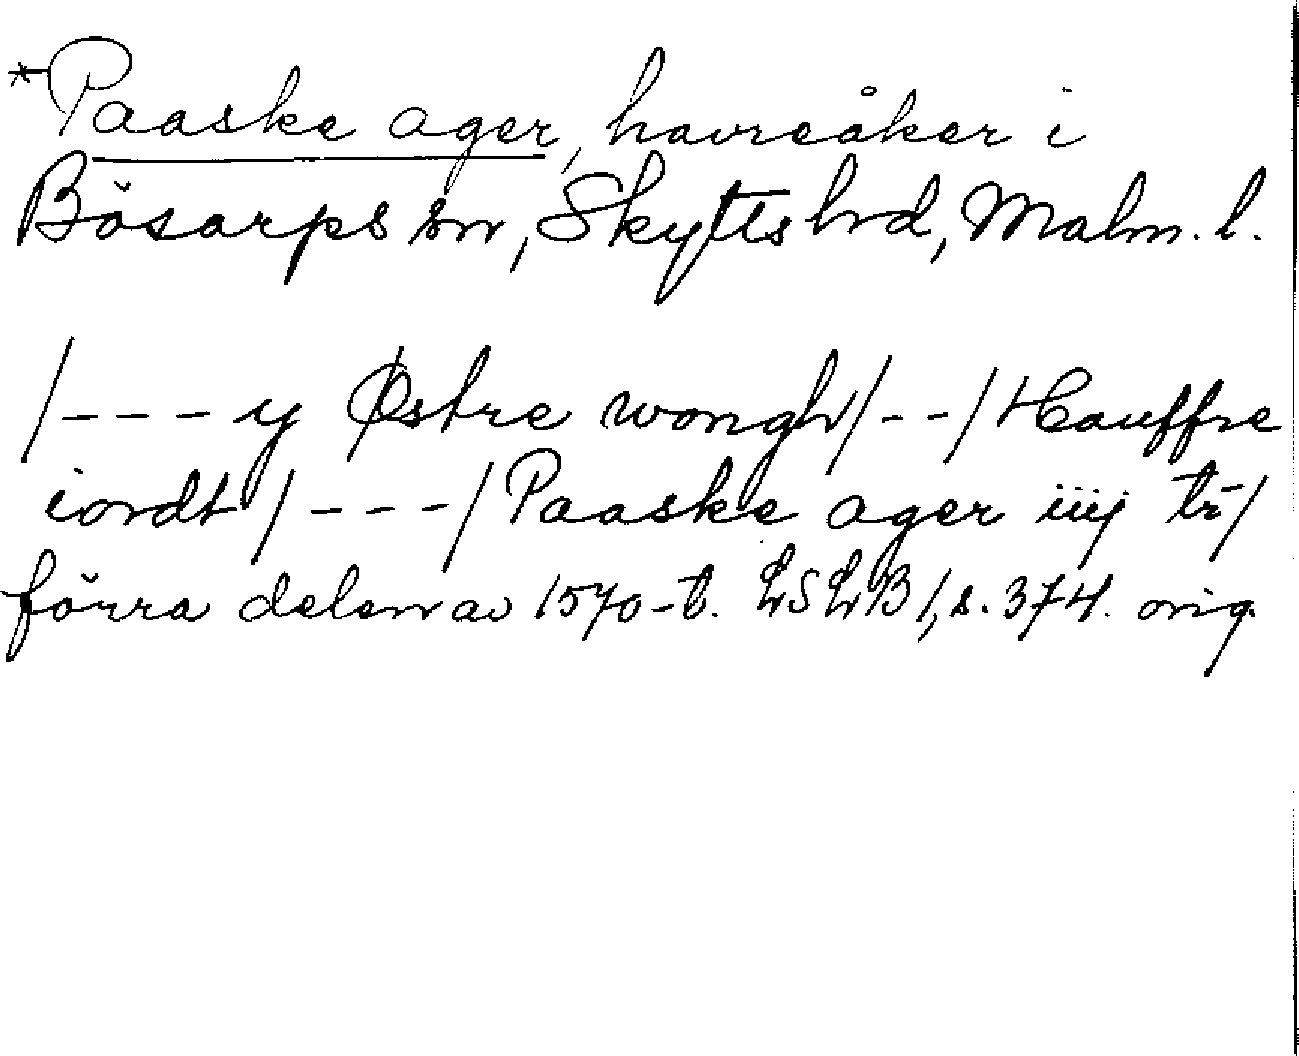 *Paaske ager, havreåker i
Bösarps sn, Skytts hd, Malm. l.
/---y Østre wongh/--/Hauffre
iordt/---/Paaske ager iiij tr̄/
förra delen av 1570-t. LSLB 1, s. 374. orig.